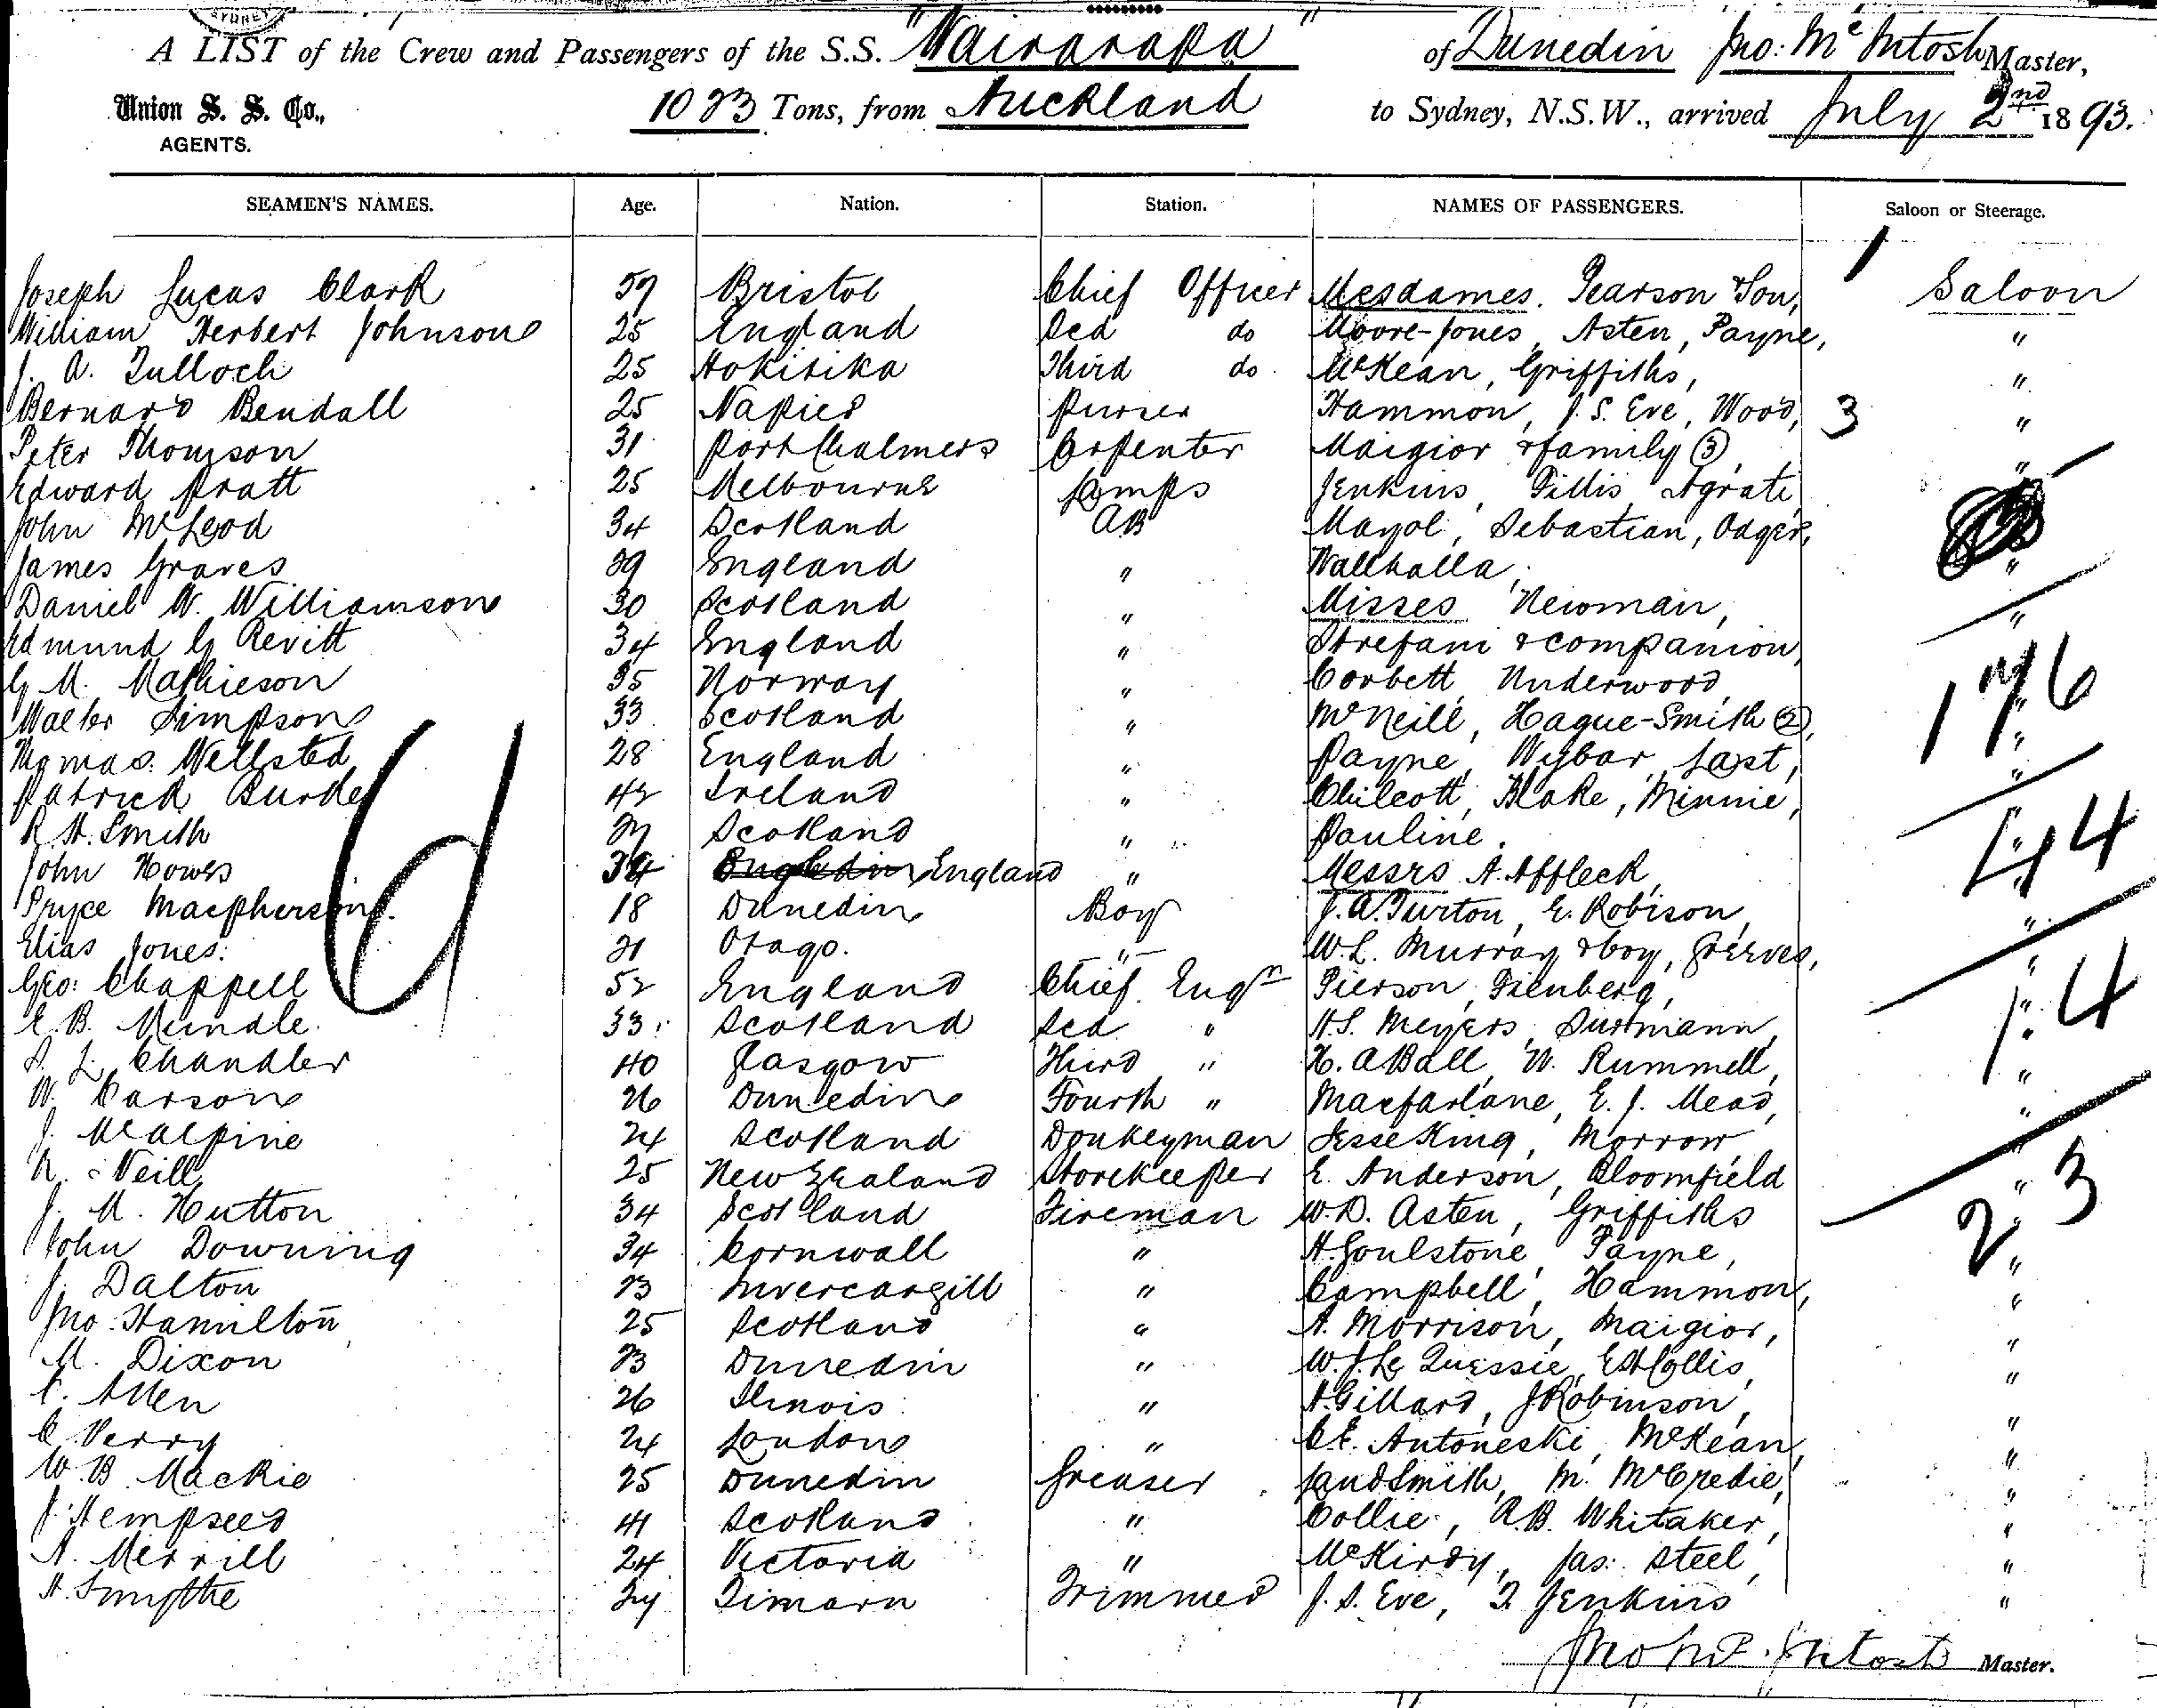 SYDNEY
A LIST of the Crew and Passengers of the S.S. "Wairarapa" of Dunedin Jno: McIntosh Master,
Union S. S. Co., 1023 Tons, from Auckland to Sydney, N.S.W., arrived July 2nd 1893.
AGENTS.
SEAMEN'S NAMES. Age. Nation. Station. NAMES OF PASSENGERS. Saloon or Steerage.
Joseph Lucas Clark Bristol Chief Officer Mesdames. Pearson & Son, Saloon
William Herbert Johnson 25 England Scd do Moore-Jones, Asten, Payne, "
J. A. Tulloch 25 Hokitika Third do McKean, Griffiths, "
Bernard Bendall 25 Napier Purser Hammon, J.S. Eve, Wood, 3 "
Peter Thomson 31 Port Chalmers Carpenter Maigior & family (3) "
Edward Pratt 25 Melbourne Lamps Jenkins, Tillis, Agrati,
John McLeod 34 Scotland AB Mayol, Sebastian, Odgers,
James Graves 29 England " Wallhalla, "
Daniel W. Williamson 30 Scotland " Misses Newman, "
Edmund G Revitt 34 England " Strefani & companion,
G M. Mathieson 35 Norway " Corbett, Underwood,
Walter Simpson 33 Scotland " McNeill, Hague-Smith (2),
Thomas. Wellsted 28 England " Payne, Wybar, Last, "
Patrick Burke 42 Ireland " Chilcott, Blake, Minnie, "
R H. Smith 27 Scotland " Pauline.
John Howes 34 England " Messrs A. Affleck,
Pryce Macpherson. 18 Dunedin Boy J.A. Turton, E. Robison, "
Elias Jones. 21 Otago. " W.L. Murray & boy, Greeves, "
Geo: Chappell 52 England Chief Engr Pierson, Fienberg,
E. B. Mundle. 33 Scotland Scd " H.S. Meyers, Surmann,
S. L. Chandler 40 Glasgow Third " H. A Ball, W. Rummell, "
W. Carson 26 Dunedin Fourth " Macfarlane, E. J. Mead, "
J. McAlpine 24 Scotland Donkeyman Jesse King, Morrow, "
N. Neill 25 New Zealand Storekeeper E. Anderson, Bloomfield "
J. M. Hutton 34 Scotland Fireman W.D. Asten, Griffiths 23
John Downing 34 Cornwall " H. Goulstone, Payne, "
J. Dalton 23 Invercargill " Campbell, Hammon, "
Jno: Hamilton 25 Scotland " A. Morrison, Maigior, "
M. Dixon 23 Dunedin " W.J. Le Quessie, E H Collis, "
C. Allen 26 Ilinois " A. Gillard, J Robinson, "
C. Perry 24 London " C.E. Antoneski, McKean, "
W. B. Mackie 25 Dunedin Greaser Landsmith, M. McCredie, "
J. Hempseed 41 Scotland " Collie, A.B. Whitaker, "
A. Merrill 24 Victoria " McKirdy, Jas: Steel, "
H. Smythe Timaru Trimmer J. S. Eve, T. Jenkins "
Jno McIntosh Master.